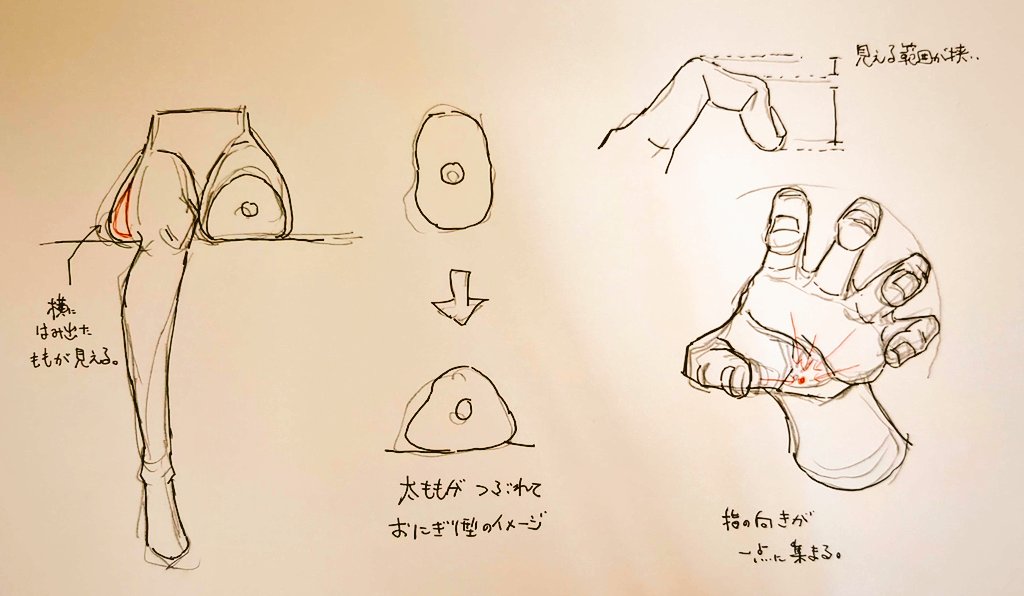 横に
はみ出た
ももが見える。
太ももが つぶれて
おにぎり型のイメージ
見える範囲が狭い
指の向きが
一点に集まる。